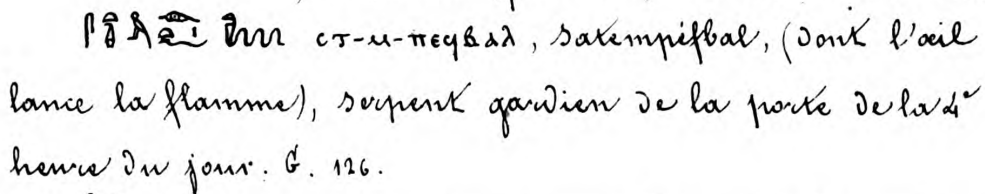 ⲥⲧ-ⲙ-ⲡⲉϥⲃⲁⲗ, satempéfbal, (dont l'œil
lance la flamme), serpent gardien de la porte de la 4e
heure du jour. G. 126.